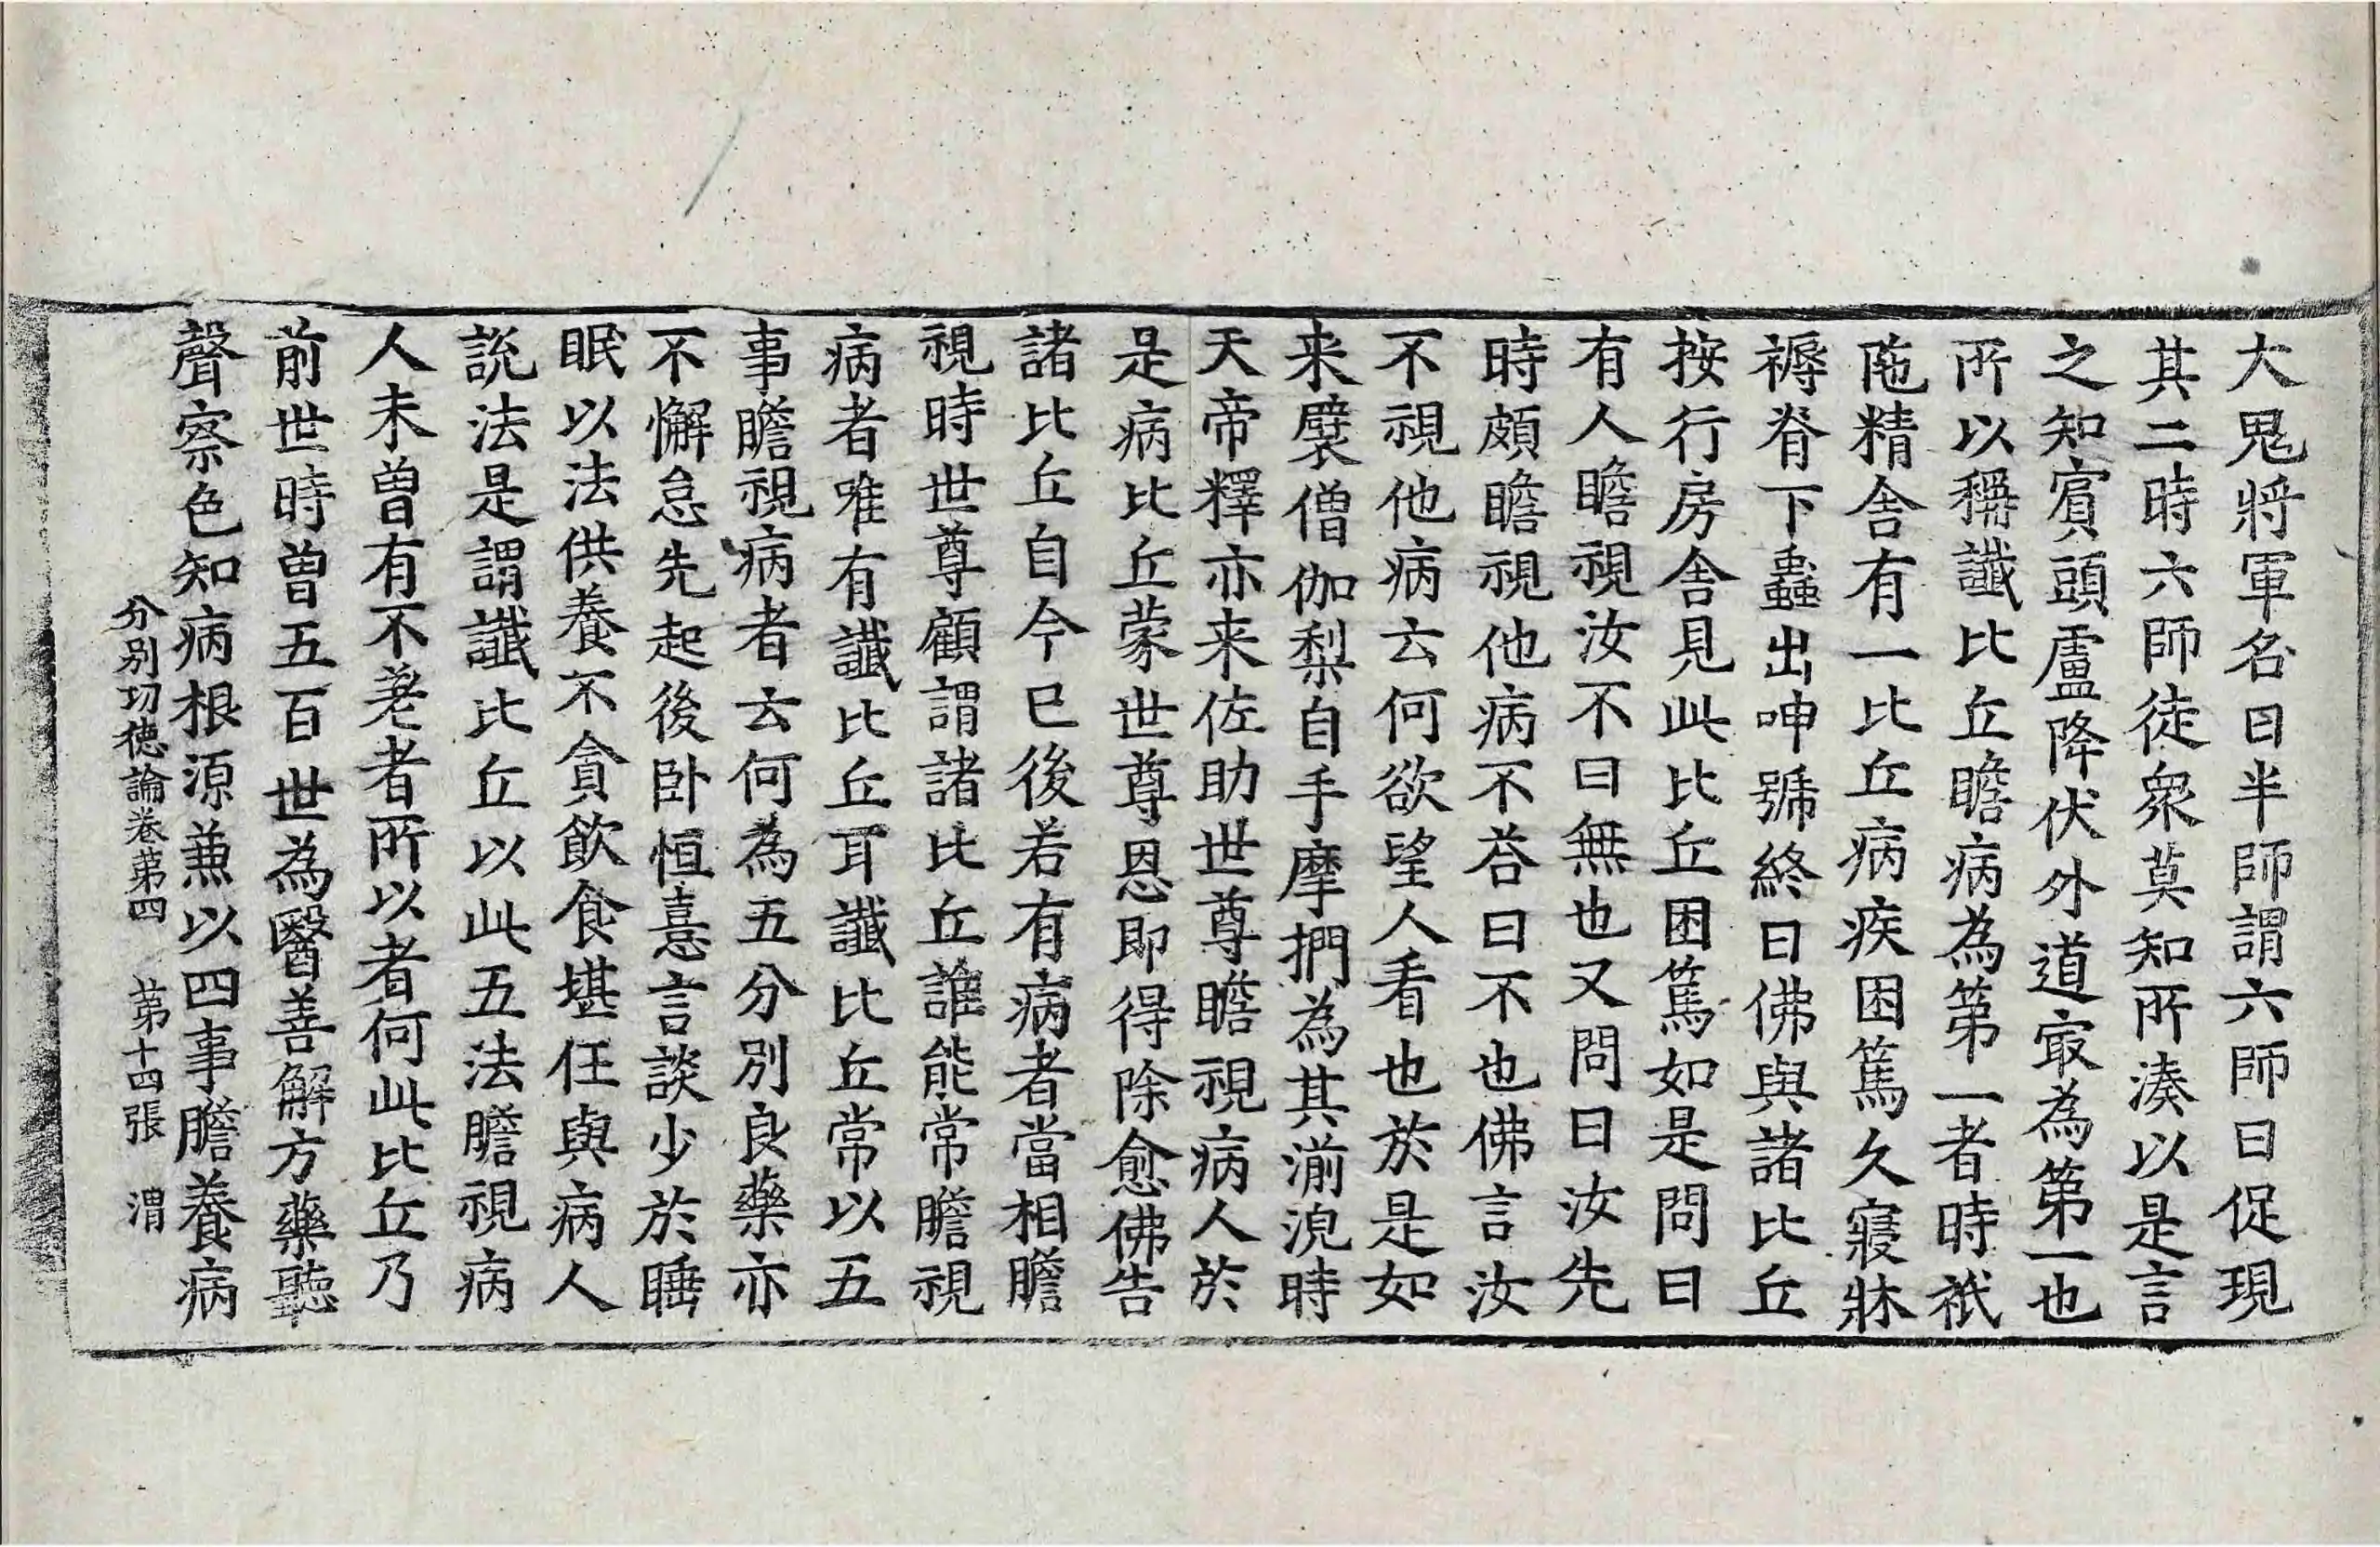 大鬼將軍名曰半師謂六師曰促現
其二時六師徒衆莫知所湊以是言
之知賔頭盧降伏外道㝡為第一也
所以稱讖比丘瞻病為第一者時祇
陁精舍有一比丘病疾困篤久寢牀
褥脊下蟲出呻號終日佛與諸比丘
按行房舍見此比丘困篤如是問曰
有人瞻視汝不曰無也又問曰汝先
時頗瞻視他病不荅曰不也佛言汝
不視他病云何欲望人看也於是如
来襞僧伽梨自手摩捫為其湔浼時
天帝釋亦来佐助世尊瞻視病人於
是病比丘蒙世尊恩即得除愈佛告
諸比丘自今已後若有病者當相瞻
視時世尊顧謂諸比丘誰能常瞻視
病者唯有讖比丘耳讖比丘常以五
事瞻視病者云何為五分別良藥亦
不懈怠先起後卧恒憙言談少於睡
眠以法供養不貪飲食堪任與病人
說法是謂讖比丘以此五法瞻視病
人未曾有不差者所以者何此比丘乃
前世時曾五百世為醫善解方藥聽
聲察色知病根源兼以四事瞻養病
分別功德論卷第四　第十四張　渭